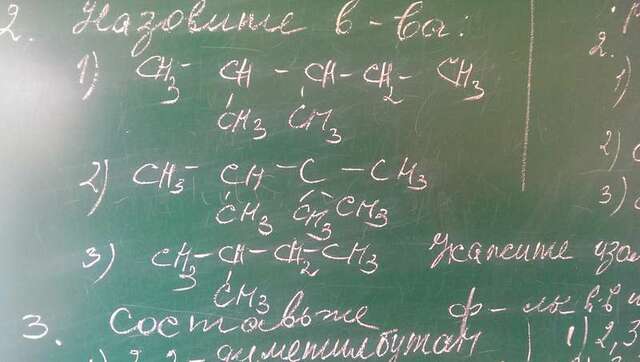 2. Назовите в-ва:
1) CH3- CH - CH - CH2 - CH3
CH3 CH3
2) CH3- CH - C - CH3
CH3 CH3 CH3
3) CH3- CH - CH2 - CH3 Укажите
CH3
3. Составьте ф-лы в-в
диметилбутан 1) 2,3
2.
1)
2)
3)